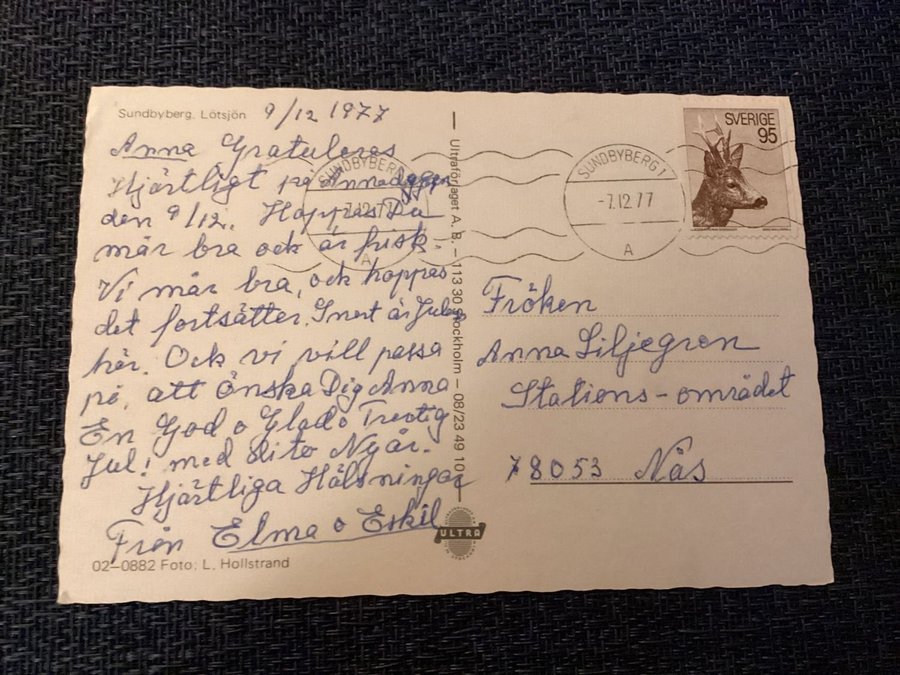 Sundbyberg. Lötsjön
9/12 1977
Anna Gratuleras
Hjärtligt på Annadagen
den 9/12. Hoppas Du
mår bra och är frisk.
Vi mår bra, och hoppas
det fortsätter. Snart är Julen
här. Och vi vill passa
på, att Önska Dig Anna
En God o Glad o Trevlig
Jul! med dito Nyår.
Hjärtliga Hälsningar
Från Elma o Eskil
02-0882 Foto: L. Hollstrand
Ultraförlaget A. B. – 113 30 Stockholm – 08/23 49 10
ULTRA
SUNDBYBERG 1
-7.12.77
A
SUNDBYBERG 1
-7.12.77
A
SVERIGE
95
Fröken
Anna Liljegren
Stations-området
78053 Nås